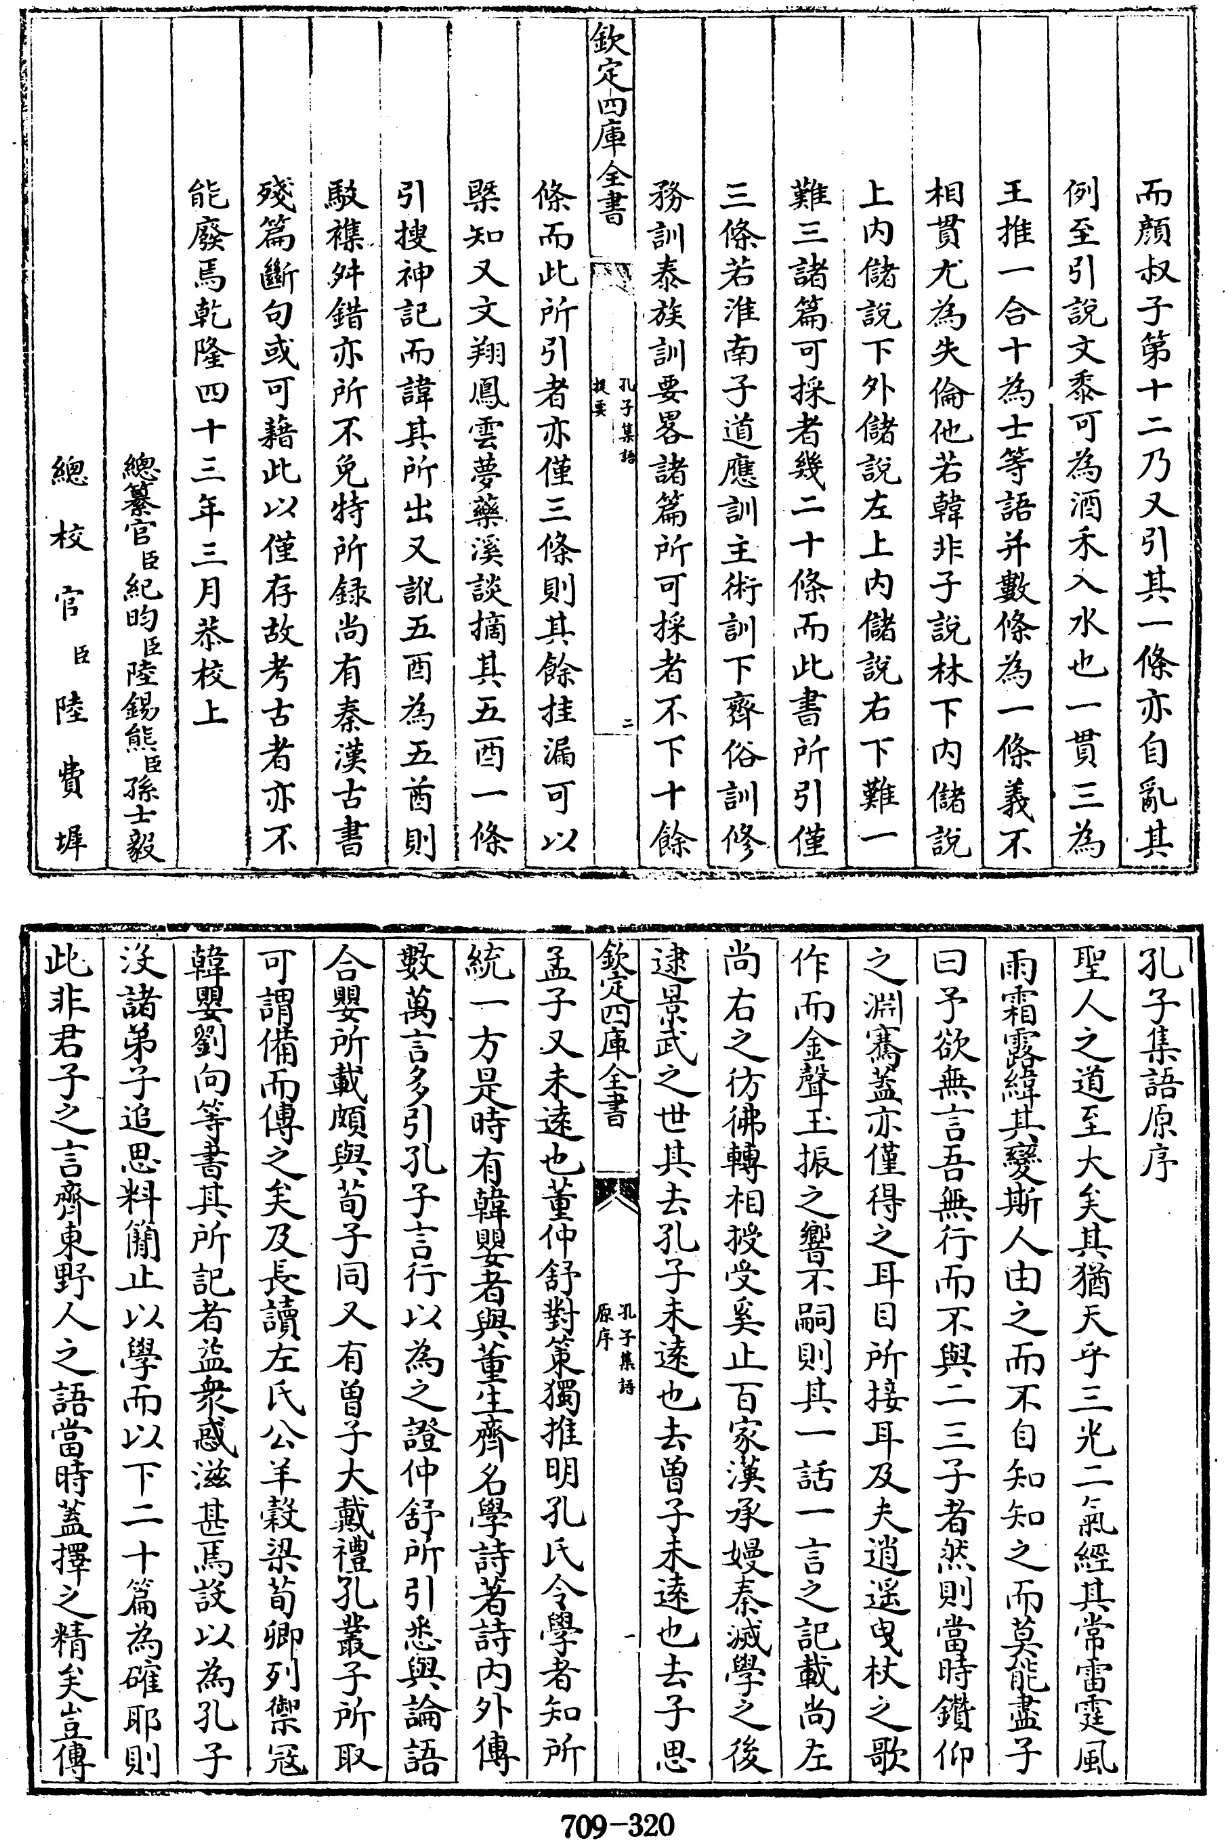 而顔叔子第十二乃又引其一條亦自亂其
例至引說文黍可為酒禾入水也一貫三為
王推一合十為士等語并數條為一條義不
相貫尤為失倫他若韓非子說林下内儲說
上内儲說下外儲說左上内儲說右下難一
難三諸篇可採者幾二十條而此書所引僅
三條若淮南子道應訓主術訓下齊俗訓修
務訓泰族訓要畧諸篇所可採者不下十餘
欽定四庫全書
孔子集語
提要
二
條而此所引者亦僅三條則其餘挂漏可以
槩知又文翔鳳雲夢藥溪談摘其五酉一條
引搜神記而諱其所出又訛五酉為五酋則
駁襍舛錯亦所不免特所録尚有秦漢古書
殘篇斷句或可藉此以僅存故考古者亦不
能廢焉乾隆四十三年三月恭校上
總纂官臣紀昀臣陸錫熊臣孫士毅
總校官臣陸費墀
孔子集語原序
聖人之道至大矣其猶天乎三光二氣經其常雷霆風
雨霜露緯其變斯人由之而不自知知之而莫能盡子
曰予欲無言吾無行而不與二三子者然則當時鑽仰
之淵騫蓋亦僅得之耳目所接耳及夫逍遥曵杖之歌
作而金聲玉振之響不嗣則其一話一言之記載尚左
尚右之仿彿轉相授受奚止百家漢承嫚秦滅學之後
逮景武之世其去孔子未遠也去曽子未遠也去子思
欽定四庫全書
孔子集語
原序
一
孟子又未遠也董仲舒對策獨推明孔氏令學者知所
統一方是時有韓嬰者與董生齊名學詩著詩内外傳
數萬言多引孔子言行以為之證仲舒所引悉與論語
合嬰所載頗與荀子同又有曽子大戴禮孔叢子所取
可謂備而傳之矣及長讀左氏公羊穀梁荀卿列禦冦
韓嬰劉向等書其所記者益衆惑滋甚焉設以為孔子
沒諸弟子追思料簡止以學而以下二十篇為確耶則
此非君子之言齊東野人之語當時蓋擇之精矣豈傳
709-320